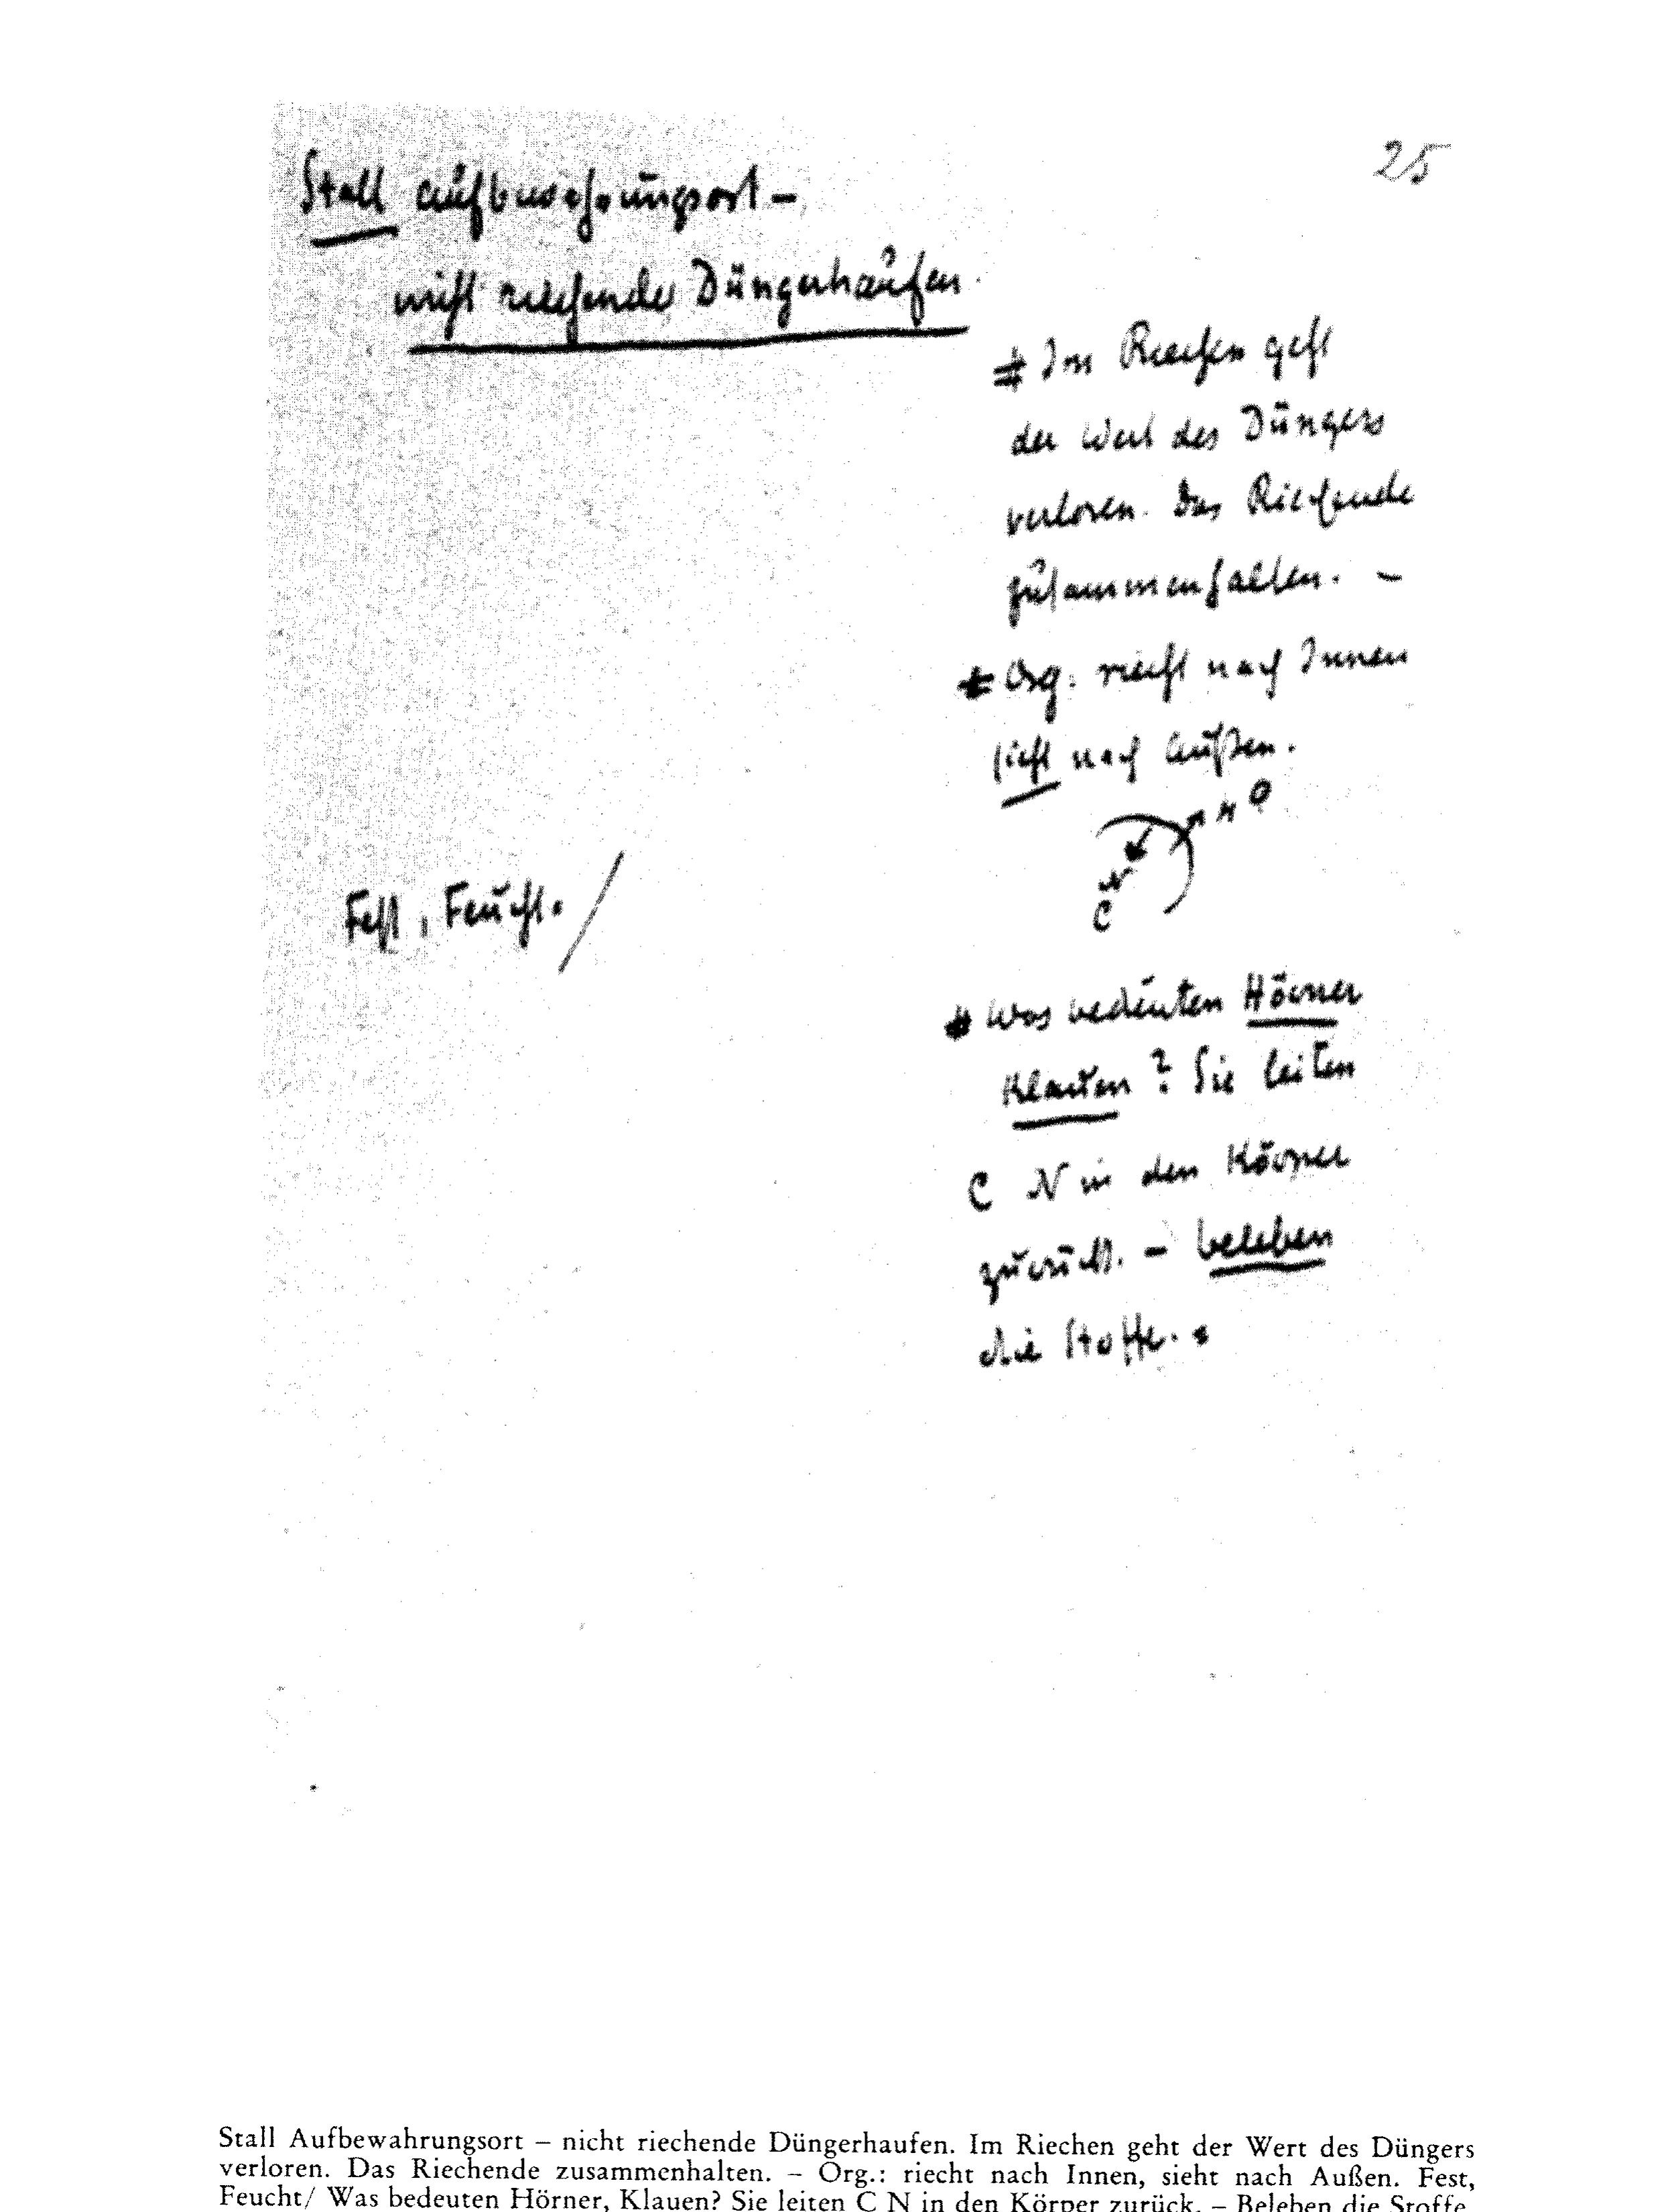 25
Stall Aufbewahrungsort –
nicht riechende Düngerhaufen.
# Im Riechen geht
der Wert des Düngers
verloren. Das Riechende
zusammenhalten. –
# Org: riecht nach Innen
sieht nach Außen.
H O
N
C
Fest, Feucht. /
# Was bedeuten Hörner
Klauen? Sie leiten
C N in den Körper
zurück. – beleben
die Stoffe.
Stall Aufbewahrungsort – nicht riechende Düngerhaufen. Im Riechen geht der Wert des Düngers
verloren. Das Riechende zusammenhalten. – Org.: riecht nach Innen, sieht nach Außen. Fest,
Feucht/ Was bedeuten Hörner, Klauen? Sie leiten C N in den Körper zurück. – Beleben die Stoffe.